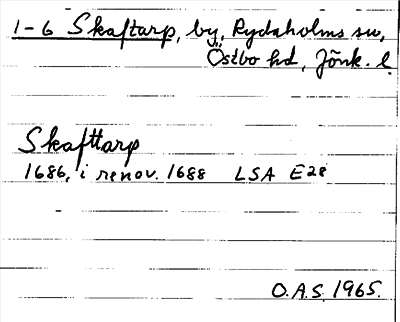 1-6 Skaftarp, by, Rydaholms sn,
Östbo hd, Jönk. l.
Skafttarp
1686, i renov. 1688 LSA E28
O.A.S. 1965.